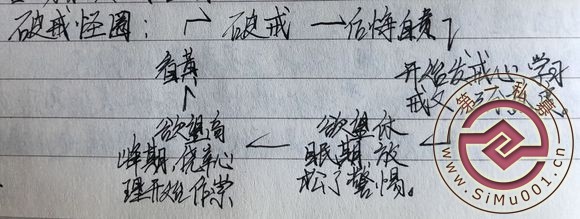 破戒怪圈: 破戒 后悔自责
看黄
开始发戒心 学习
戒
欲望高
峰期,侥幸心
理开始作祟
欲望休
眠期,放
松了警惕。
第一私募
www.SiMu001.cn